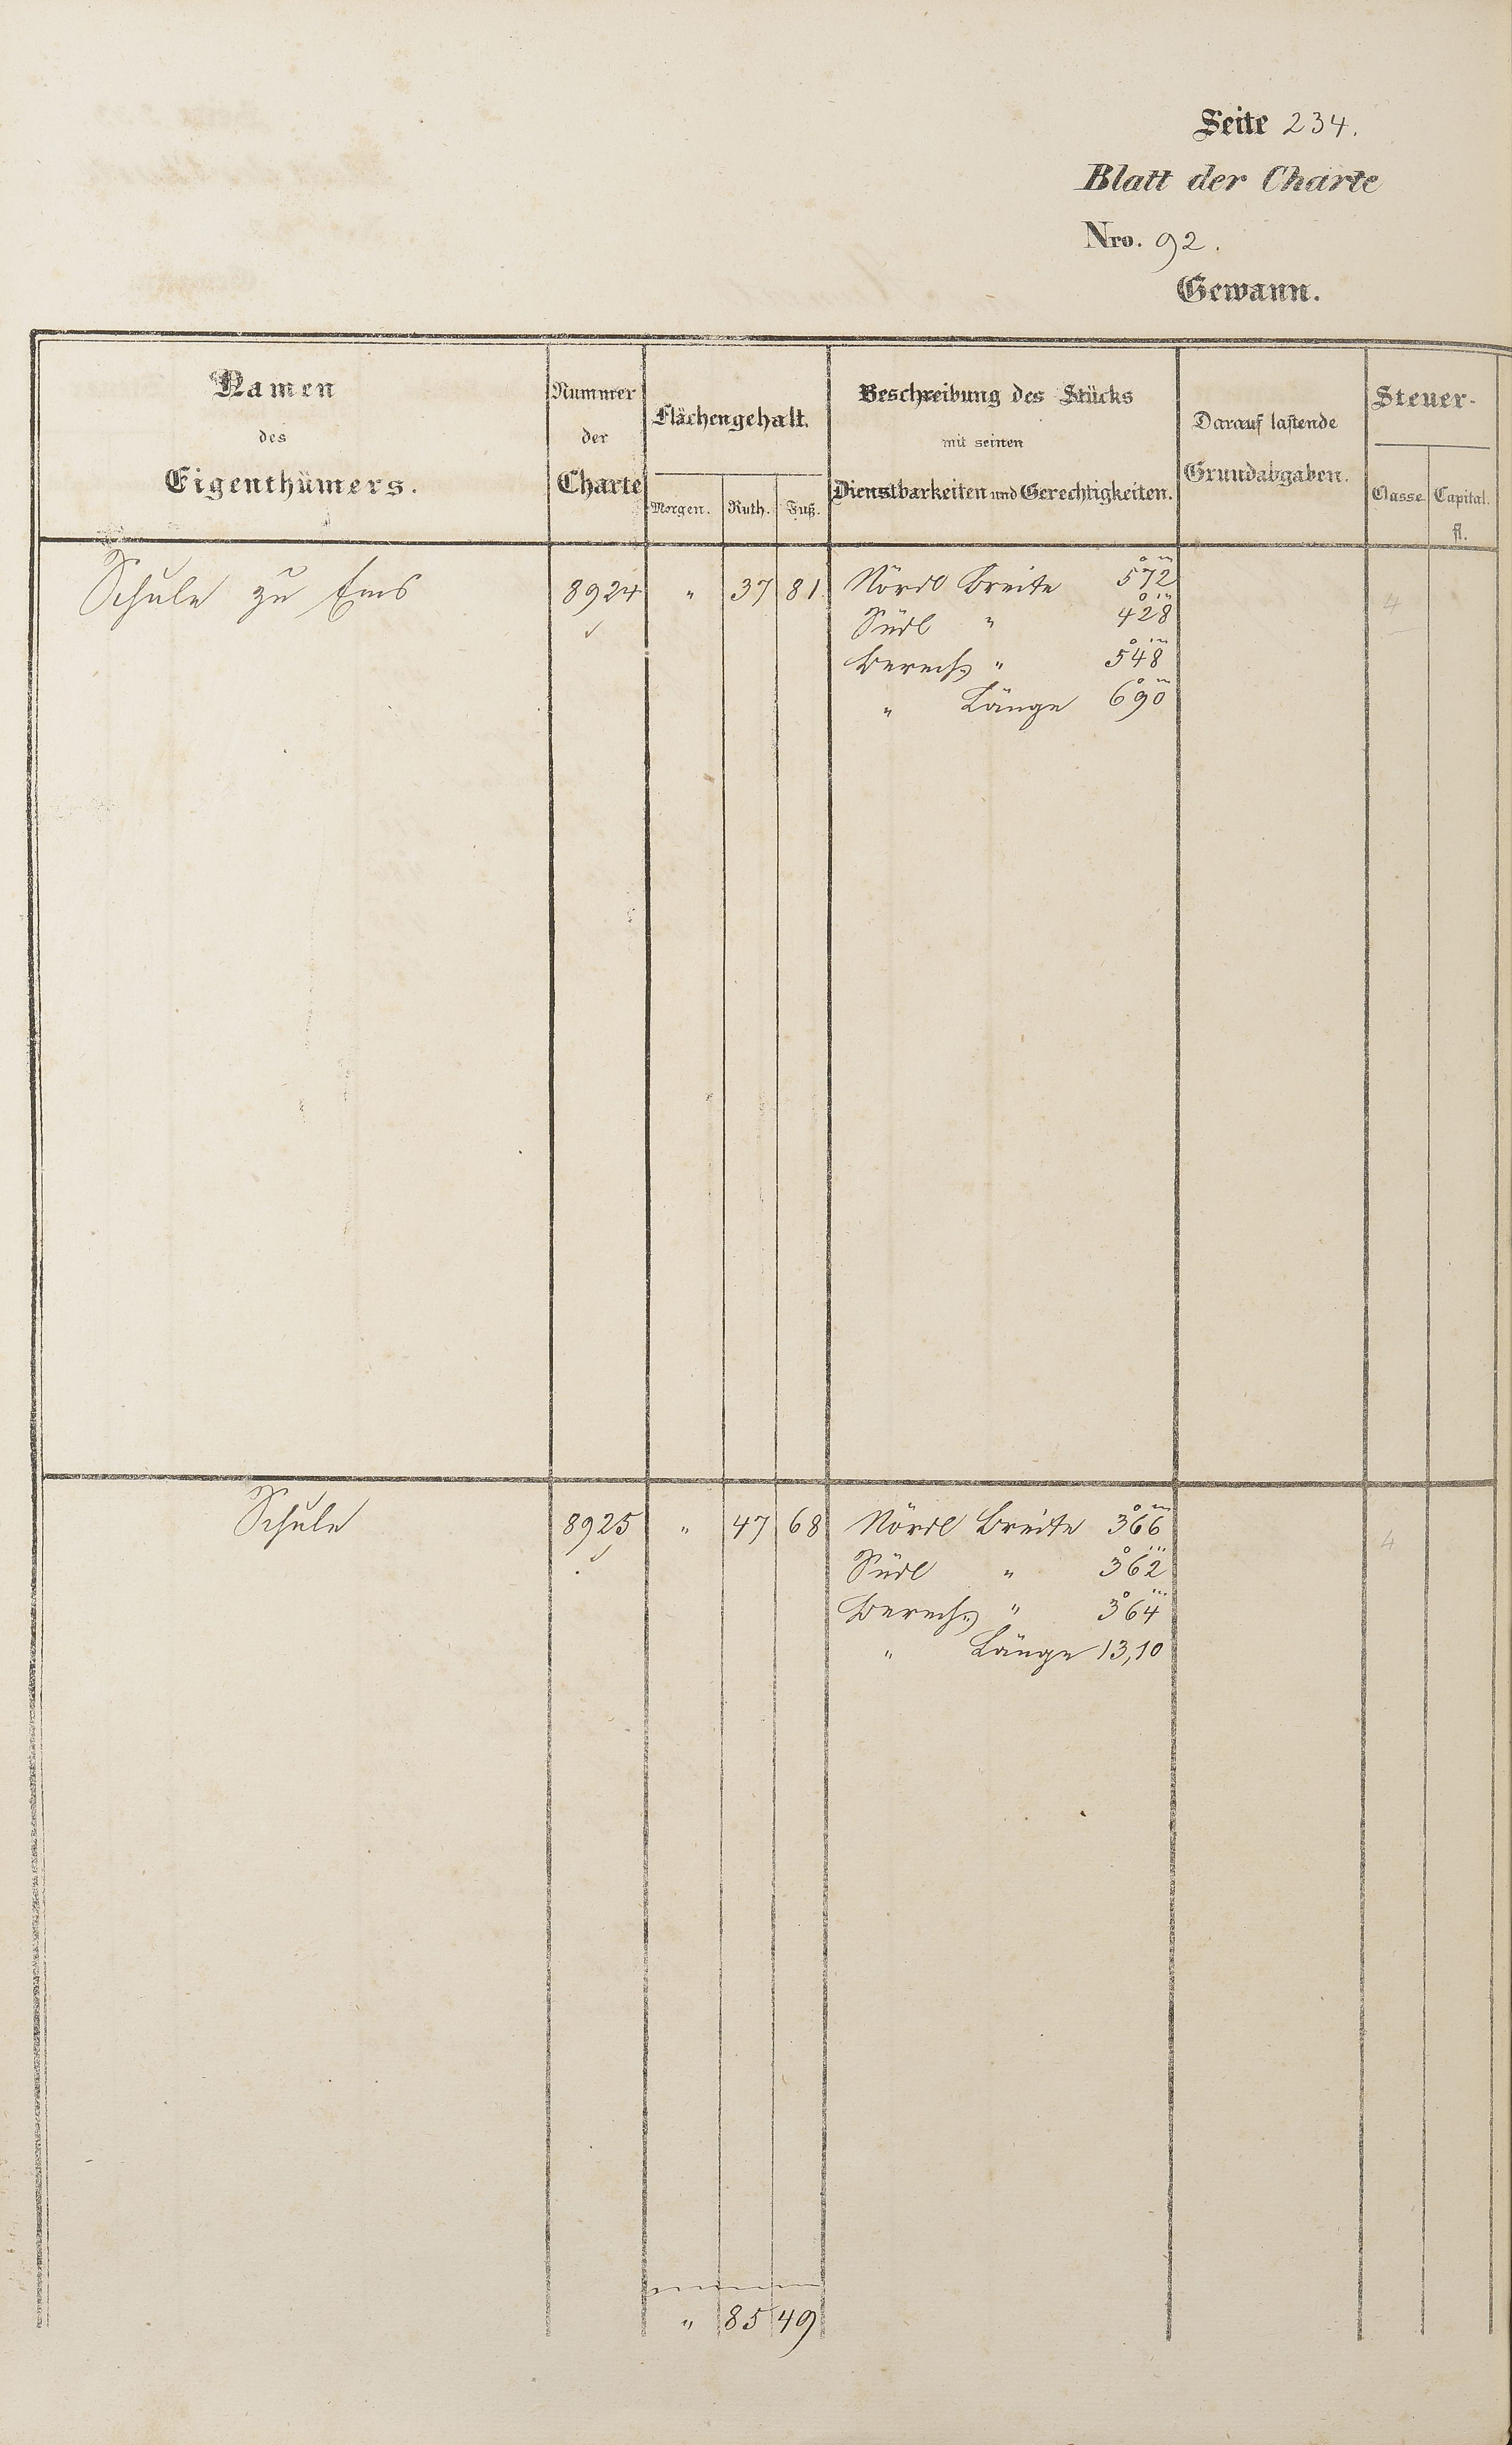 Seite 234.
Blatt der Charte
Nro. 92.
Gewann.
Namen
des
Eigenthümers.
Nummer
der
Charte
Flächengehalt.
Morgen. Ruth. Fuß.
Beschreibung des Stücks
mit seinen
Dienstbarkeiten und Gerechtigkeiten.
Darauf lastende
Grundabgaben.
Steuer-
Classe Capital.
fl.
Schule zu Ems 8924 " 37 81 Nördl Breite 572 4
Südl " 428
berechn " 548
" Länge 690
Schule 8925 " 47 68 Nördl Breite 366 4
Südl " 362
berechn " 364
" Länge 13,10
" 85 49